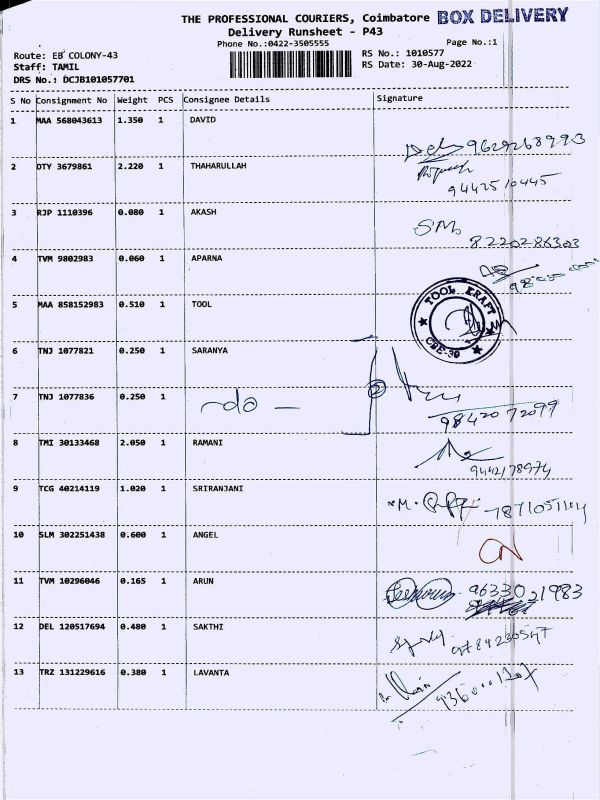 THE PROFESSIONAL COURIERS, Coimbatore BOX DELIVERY
Delivery Runsheet - P43
Phone No.:0422-3505555 Page No.:1
Route: EB COLONY-43 RS No.: 1010577
Staff: TAMIL RS Date: 30-Aug-2022
DRS No.: DCJB101057701
S No Consignment No Weight PCS Consignee Details Signature
1 MAA 568043613 1.350 1 DAVID
9629268993
2 DTY 3679861 2.220 1 THAHARULLAH
9442510445
3 RJP 1110396 0.080 1 AKASH
8220286303
4 TVM 9802983 0.060 1 APARNA
5 MAA 858152983 0.510 1 TOOL
TOOL KRAFT
CBE-39
6 TNJ 1077821 0.250 1 SARANYA
7 TNJ 1077836 0.250 1
-do- 2
9842072099
8 TMI 30133468 2.050 1 RAMANI
9442178974
9 TCG 40214119 1.020 1 SRIRANJANI
10 SLM 302251438 0.600 1 ANGEL
11 TVM 10296046 0.165 1 ARUN
9633021983
12 DEL 120517694 0.480 1 SAKTHI
13 TRZ 131229616 0.380 1 LAVANTA